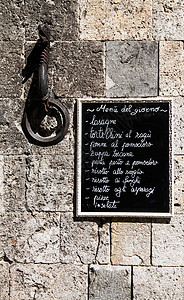 ~ Menù del giorno ~
- lasagne
- tortellini al ragù
- penne al pomodoro
- zuppa toscana
- pasta pesto e pomodoro
- risotto alla
- risotto ai funghi
- risotto agli asparagi
- pizze
- insalate